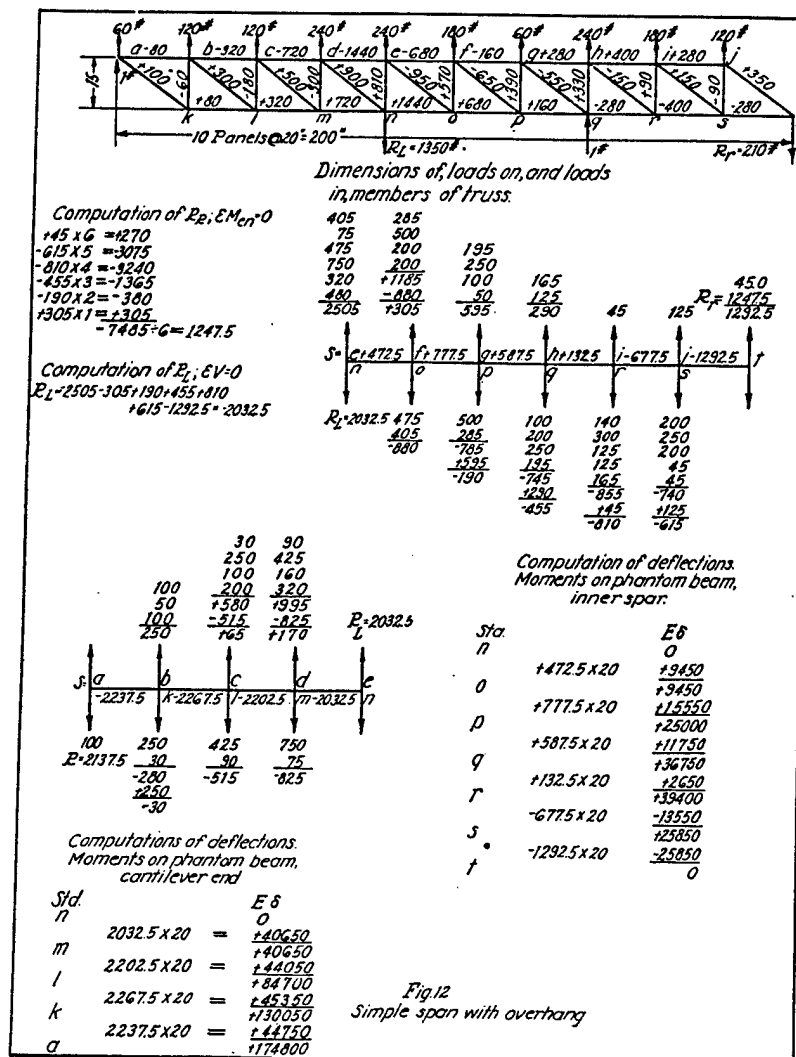 60# 120# 120# 240# 240# 180# 60# 240# 180# 120#
a-80 b-320 c-720 d-1440 e-680 f-160 g+280 h+400 i+280 j
1# +100 -60 +300 -180 +500 -300 +900 +810 -950 +570 -650 +390 -550 +330 -150 +90 +150 -90 +350
-15-
+80 +320 +720 +1440 +680 +160 -280 -400 -280
k l m n o p q r s
10 Panels@20"=200"
R_L=1350#
1#
R_r=210#
Dimensions of, loads on, and loads
in, members of truss.
Computation of R_R; ΣM_en=0
+45 x 6 =+270
-615 x 5 =-3075
-810 x 4 =-3240
-455 x 3=-1365
-190 x 2= -380
+305 x 1= +305
-7485÷6= 1247.5
Computation of R_L; ΣV=0
R_L=2505-305+190+455+810
+615-1292.5=-2032.5
405 285
75 500
475 200 195
750 200 250
320 +1185 100 165 45.0
480 -880 50 125 R_r= 1247.5
2505 +305 595 290 45 125 1292.5
S= e+472.5 f+777.5 g+587.5 h+132.5 i-677.5 j-1292.5 t
n o p q r s
R_L=2032.5 475 500 100 140 200
405 285 200 300 250
-880 -785 250 125 200
+595 195 125 45
-190 -745 165 45
+290 -855 -740
-455 +45 +125
-810 -615
30 90
250 425
100 100 160
50 200 320
100 +580 +995
250 -515 -825 R_L=2032.5
+65 +170
S= a b c d e
-2237.5 k-2267.5 l-2202.5 m-2032.5 n
100 250 425 750
R=2137.5 30 90 75
-280 -515 -825
+250
-30
Computation of deflections.
Moments on phantom beam,
inner spar.
Sta. Eδ
n 0
+472.5 x 20 +9450
o +9450
+777.5 x 20 +15550
p +25000
+587.5 x 20 +11750
q +36750
+132.5 x 20 +2650
r +39400
-677.5 x 20 -13550
s +25850
-1292.5 x 20 -25850
t 0
Computations of deflections.
Moments on phantom beam,
cantilever end
Std. Eδ
n 0
2032.5 x 20 = +40650
m +40650
2202.5 x 20 = +44050
l +84700
2267.5 x 20 = +45350
k +130050
2237.5 x 20 = +44750
a +174800
Fig.12
Simple span with overhang